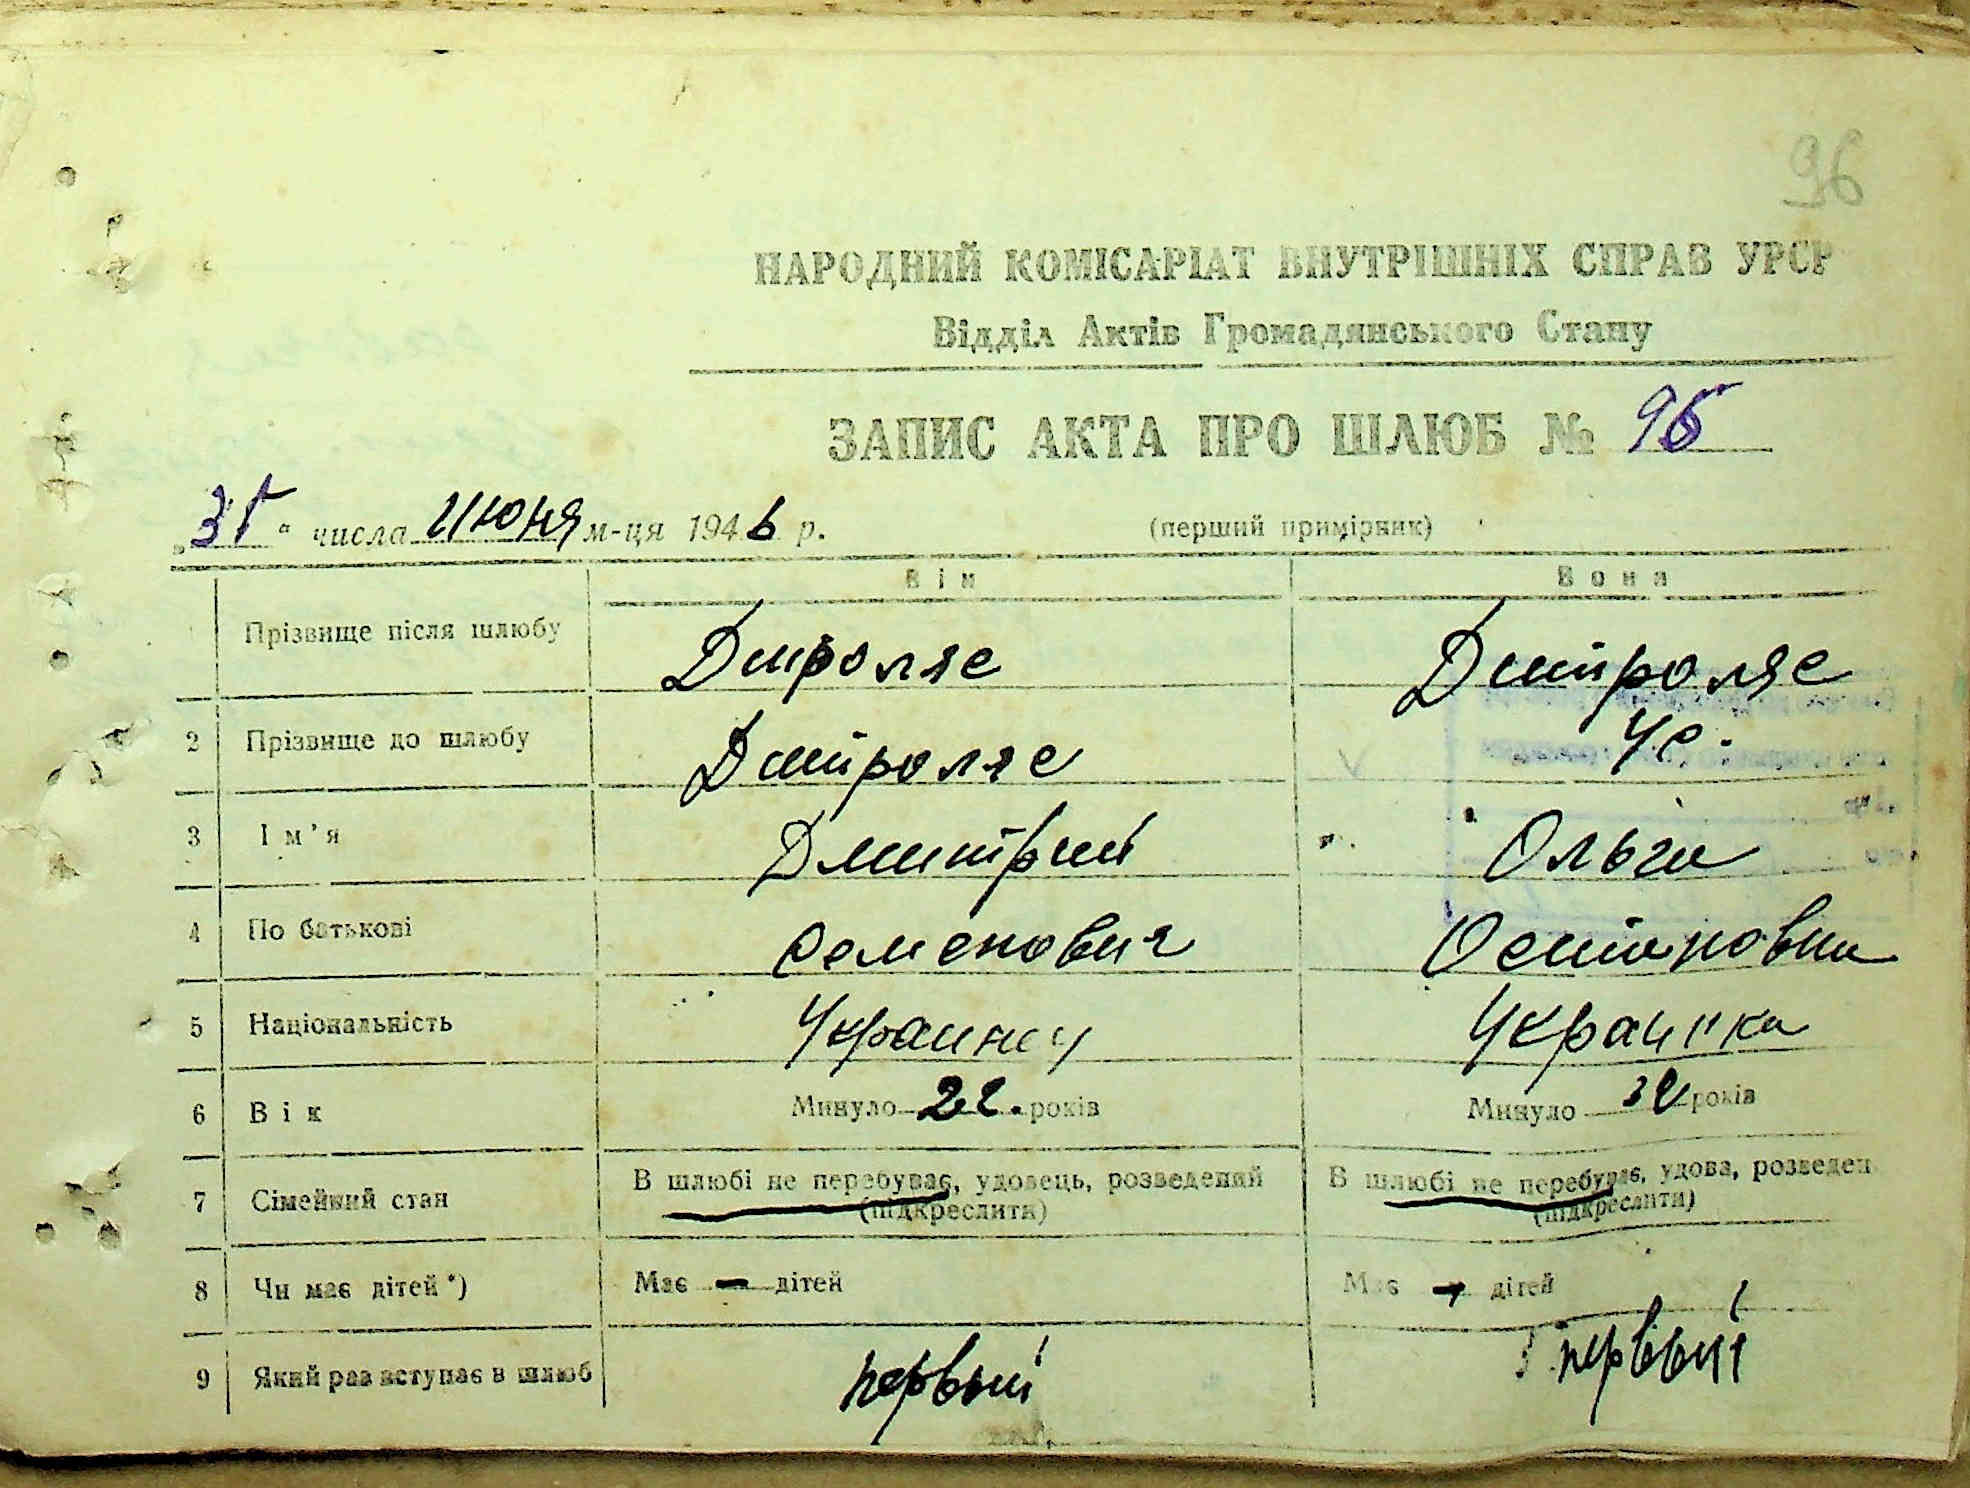 96
НАРОДНИЙ КОМІСАРІАТ ВНУТРІШНІХ СПРАВ УРСР
Відділ Актів Громадянського Стану
ЗАПИС АКТА ПРО ШЛЮБ №
" числа июня м-ця 1946 р. (перший примірник)
Він Вона
Прізвище після шлюбу Дмроляс Дмитроляс
2 Прізвище до шлюбу Дмитроляс Ус.
3 Ім'я Дмитрий Ольга
4 По батькові Семенович Остаповна
5 Національність Украинец Украинка
6 Вік Минуло 22. років Минуло років
7 Сімейний стан В шлюбі не перебуває, удовець, розведений (підкреслити) В шлюбі не перебуває, удова, розведен (підкреслити)
8 Чи має дітей *) Має — дітей Має — дітей
9 Який раз вступає в шлюб первый первый